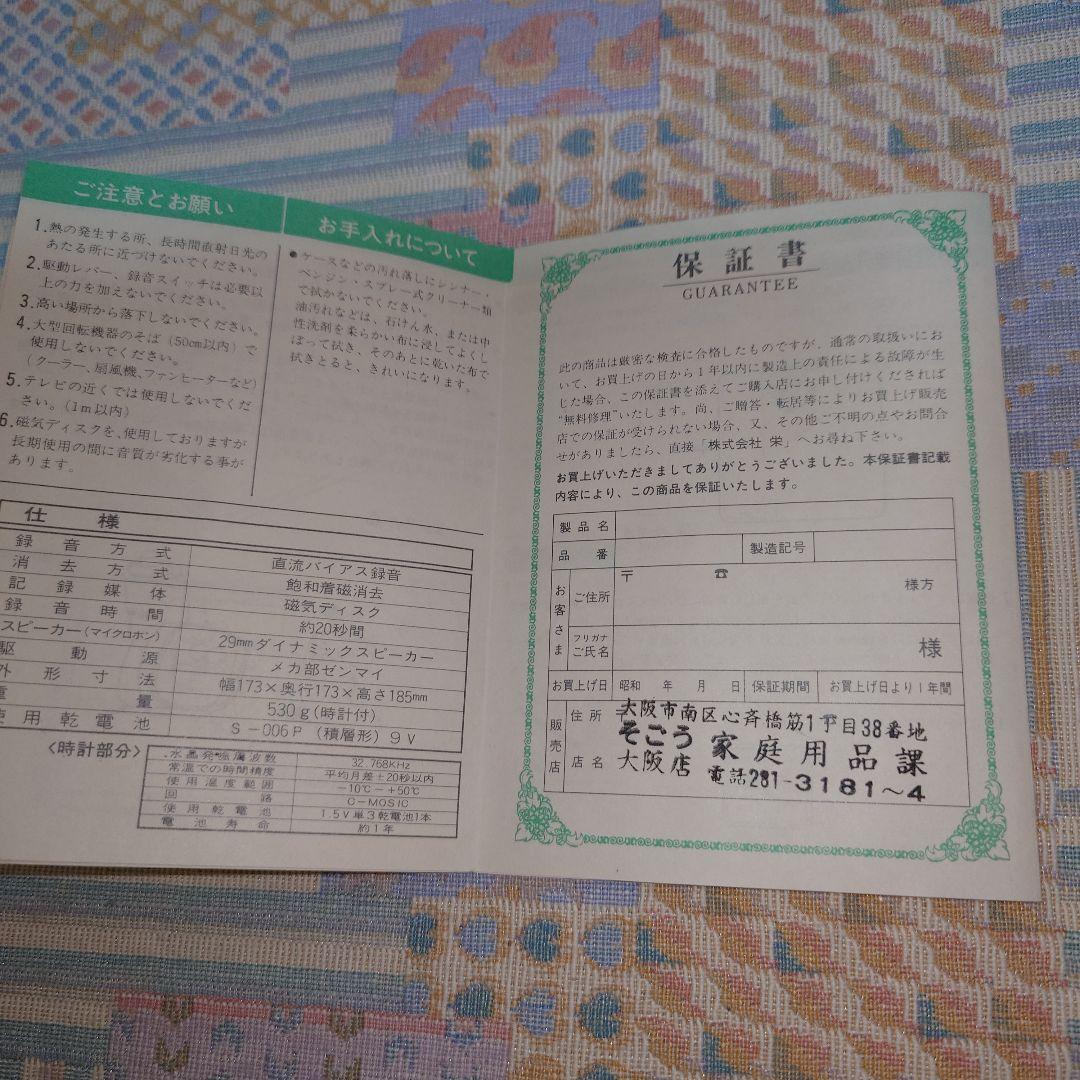 ご注意とお願い
1.熱の発生する所、長時間直射日光の
あたる所に近づけないでください。
2.駆動レバー、録音スイッチは必要以
上の力を加えないでください。
3.高い場所から落下しないでください。
4.大型回転機器のそば(50cm以内)で
使用しないでください。
(クーラー、扇風機、ファンヒーターなど)
5.テレビの近くでは使用しないでくだ
さい。(1m以内)
6.磁気ディスクを、使用しておりますが
長期使用の間に音質が劣化する事が
あります。
お手入れについて
●ケースなどの汚れ落しにシンナー・
ベンジン・スプレー式クリーナー類
で拭かないでください。
油汚れなどは、石けん水、または中
性洗剤を柔らかい布に浸してよくし
ぼって拭き、そのあとに乾いた布で
拭きとると、きれいになります。
仕 様
録音方式 直流バイアス録音
消去方式 飽和着磁消去
記録媒体 磁気ディスク
録音時間 約20秒間
スピーカー(マイクロホン) 29mmダイナミックスピーカー
駆動源 メカ部ゼンマイ
外形寸法 幅173×奥行173×高さ185mm
重量 530g(時計付)
使用乾電池 S-006P(積層形)9V
〈時計部分〉
水晶発振周波数 32.768KHz
常温での時間精度 平均月差±20秒以内
使用温度範囲 -10℃~+50℃
回路 C-MOSIC
使用乾電池 1.5V単3乾電池1本
電池寿命 約1年
保証書
GUARANTEE
此の商品は厳密な検査に合格したものですが、通常の取扱いにお
いて、お買上げの日から1年以内に製造上の責任による故障が生
じた場合、この保証書を添えてご購入店にお申し付けくだされば
"無料修理"いたします。尚、ご贈答・転居等によりお買上げ販売
店での保証が受けられない場合、又、その他ご不明の点やお問合
せがありましたら、直接「株式会社 栄」へお尋ね下さい。
お買上げいただきましてありがとうございました。本保証書記載
内容により、この商品を保証いたします。
製品名
品番 製造記号
お客さま ご住所 〒 ☎ 様方
フリガナ
ご氏名 様
お買上げ日 昭和 年 月 日 保証期間 お買上げ日より1年間
販売店 住所 大阪市南区心斉橋筋1丁目38番地
店名 そごう 家庭用品課
大阪店 電話281-3181~4